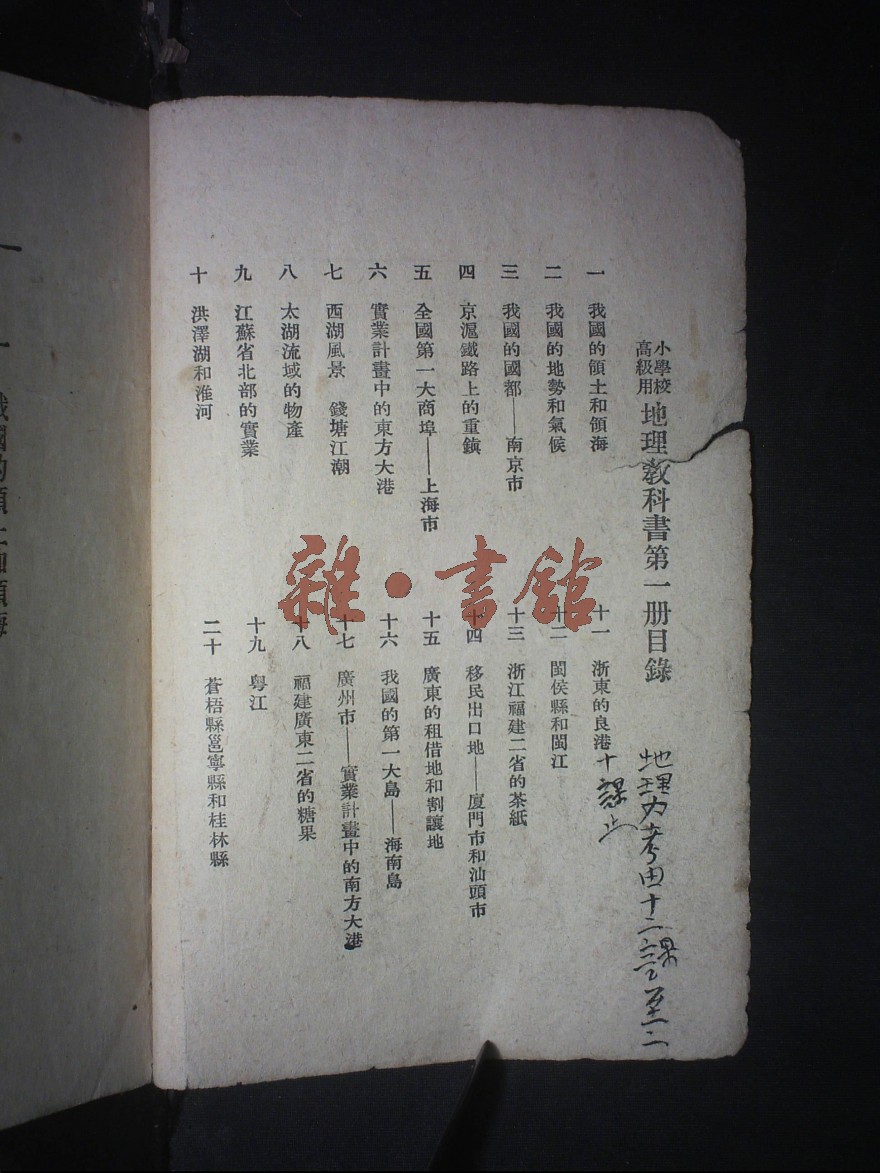 小學校高級用 地理教科書第一册目錄
一 我國的領土和領海
二 我國的地勢和氣候
三 我國的國都——南京市
四 京滬鐵路上的重鎮
五 全國第一大商埠——上海市
六 實業計畫中的東方大港
七 西湖風景 錢塘江潮
八 太湖流域的物產
九 江蘇省北部的實業
十 洪澤湖和淮河
十一 浙東的良港
十二 閩侯縣和閩江
十三 浙江福建二省的茶紙
十四 移民出口地——廈門市和汕頭市
十五 廣東的租借地和割讓地
十六 我國的第一大島——海南島
十七 廣州市——實業計畫中的南方大港
十八 福建廣東二省的糖果
十九 粵江
二十 蒼梧縣邕寧縣和桂林縣
地理 考由十二課 至二
十課止
雜·書館
一 我國的領土和領海